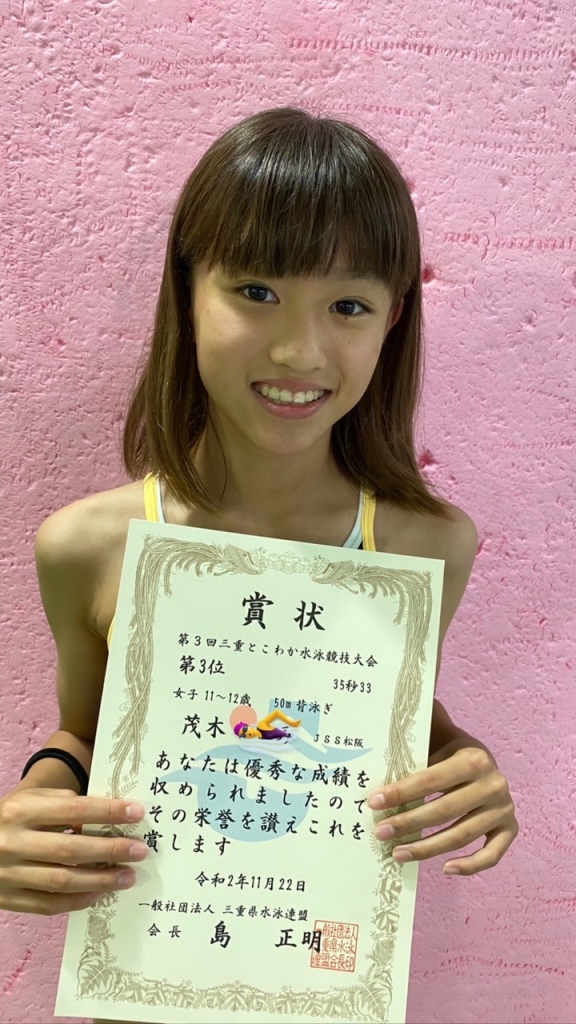 賞状
第3回三重とこわか水泳競技大会
第3位
35秒33
女子 11〜12歳 50m 背泳ぎ
茂木
JSS松阪
あなたは優秀な成績を
収められましたので
その栄誉を讃えこれを
賞します
令和2年11月22日
一般社団法人 三重県水泳連盟
会長 島 正明
一般社団法人
三重県水泳
連盟会長印